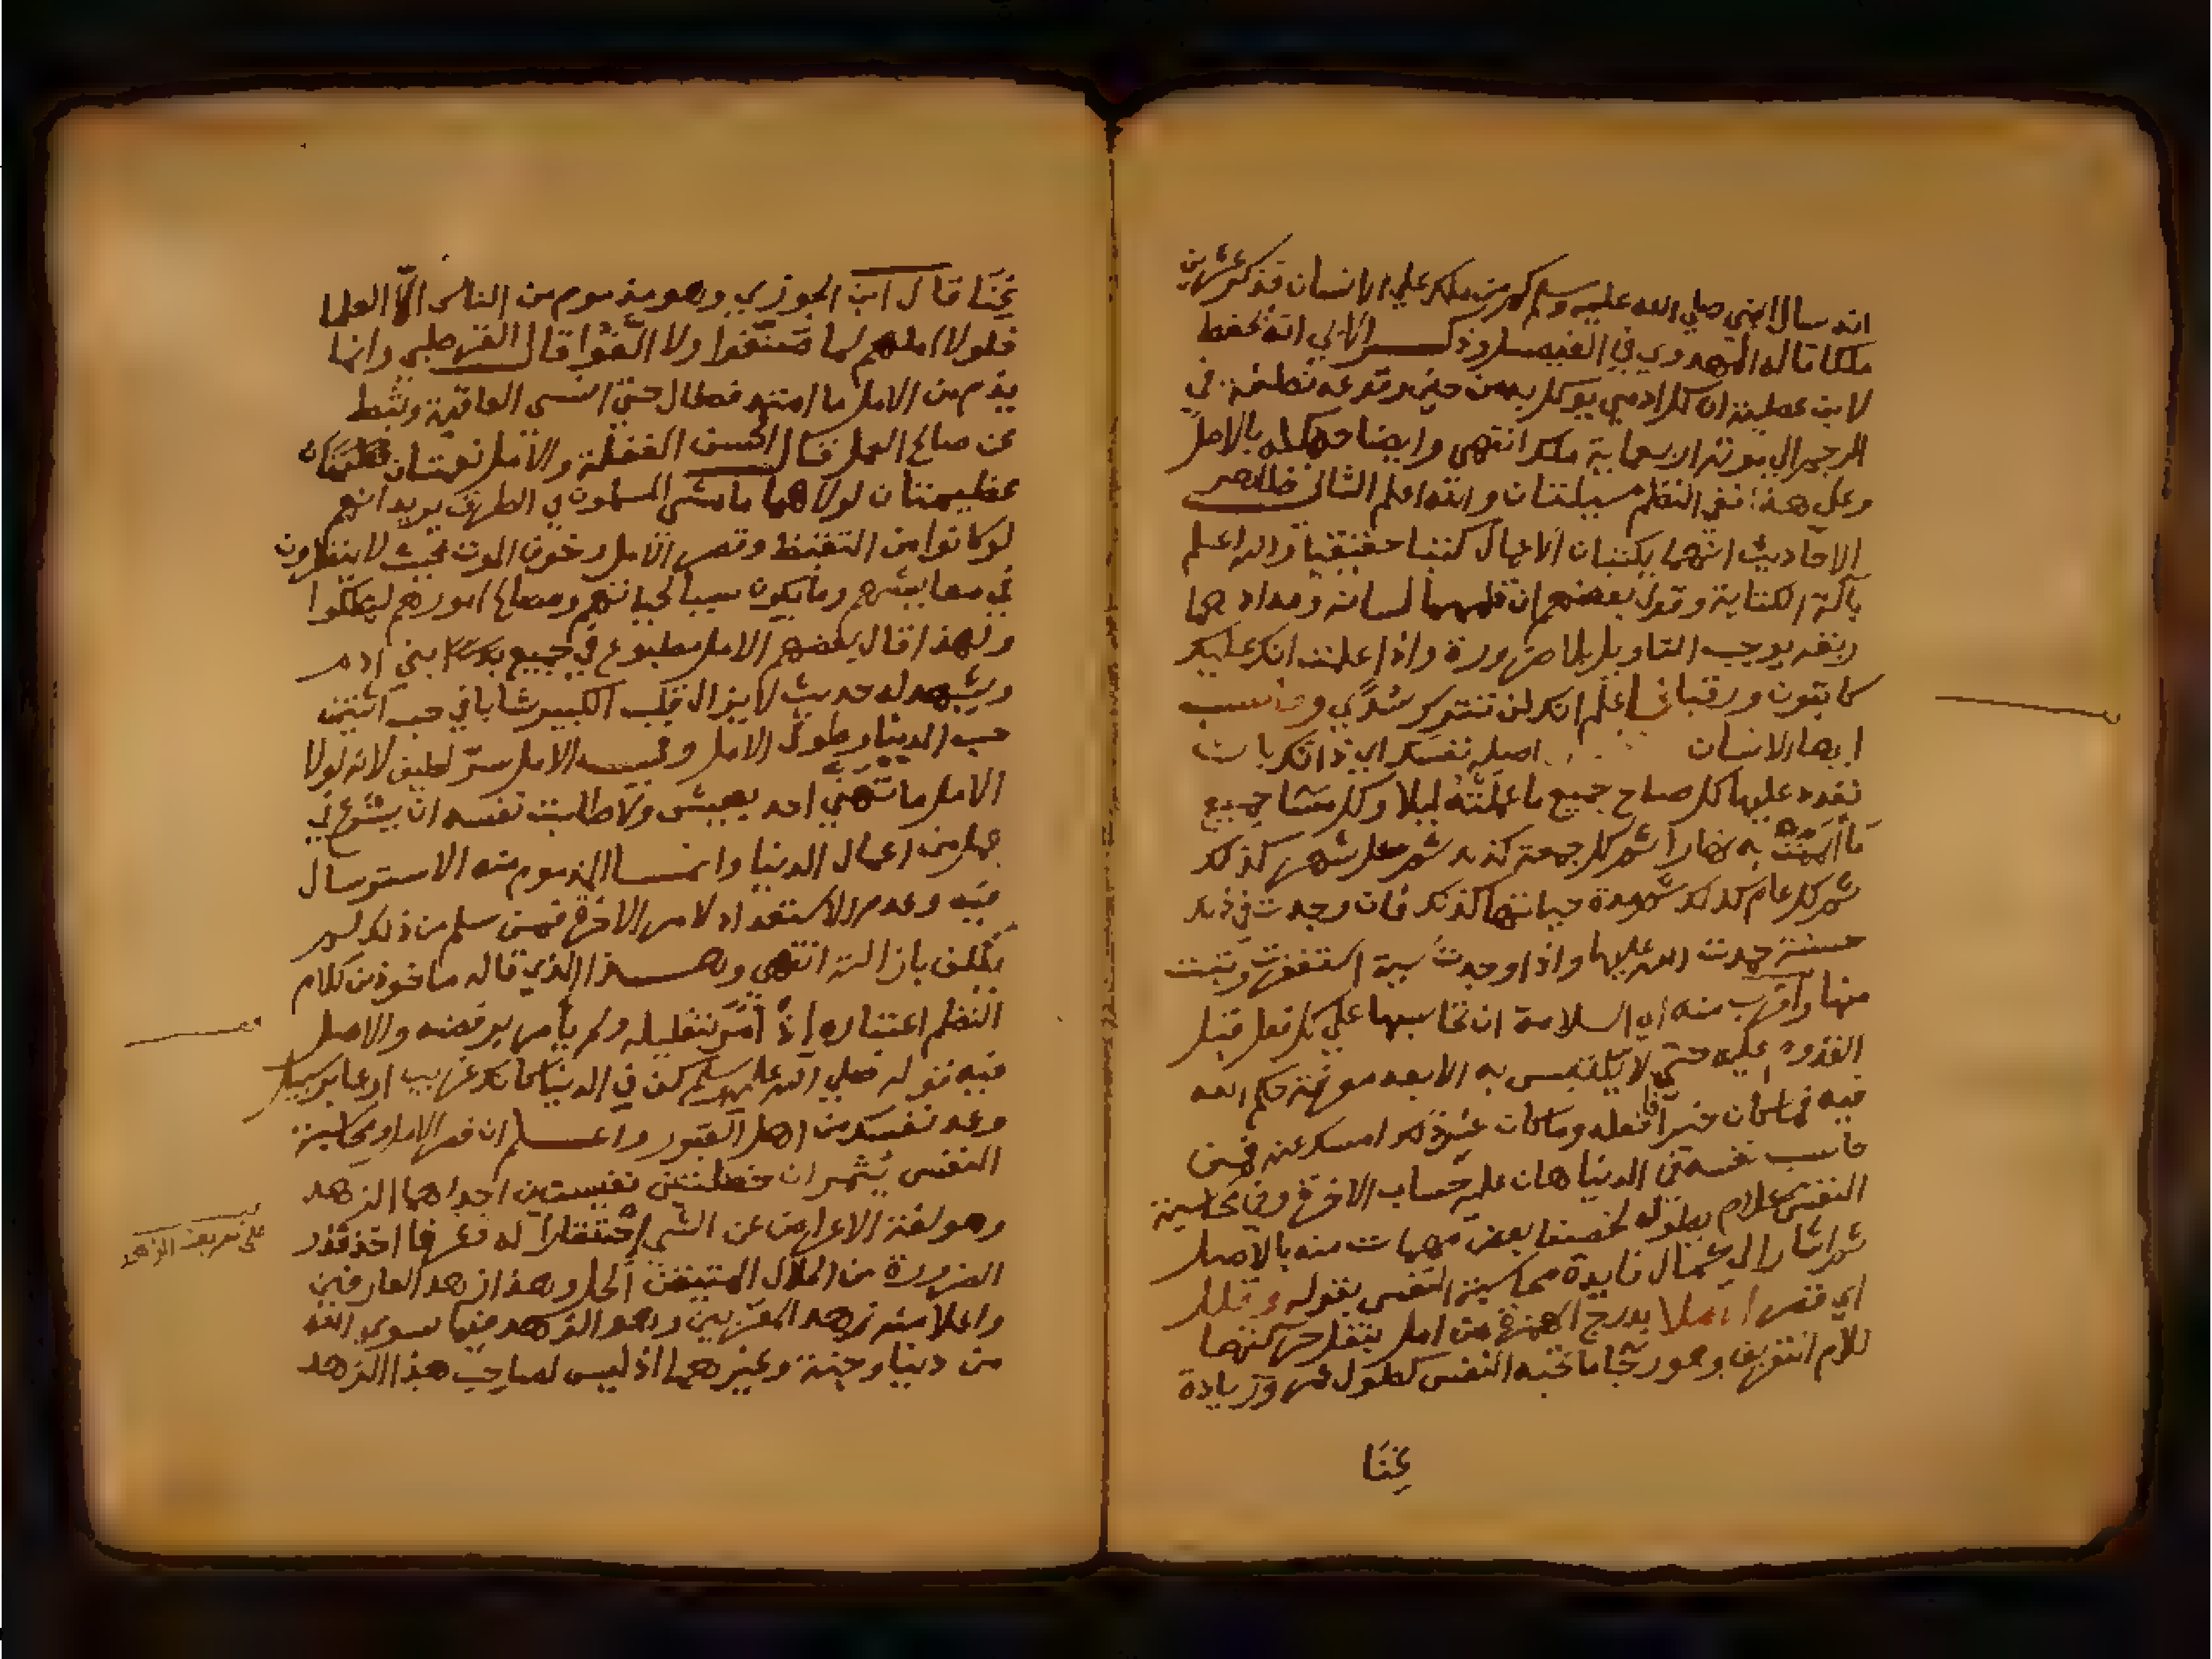 انه سال النبي صلي الله عليه وسلم كم من ملك علي الانسان فذكر عشرين
ملكا قاله المهدوي في الفيصل وذكر الابي انه يحفظ
لابن عطية ان كل ادمي يوكل به من حين وقوعه نطفة في
الرحم الي موته اربعماية ملك انتهي وايضا
وعلي هذا ففي النظم مسيلتان والله اعلم الثاني ظاهر
الاحاديث انهما يكتبان الاعمال كتبا حقيقيا والله اعلم
بآلة الكتابة وقول بعضهم ان قلمهما لسانه ومدادهما
ريقه يوجب التاويل بلا ضرورة واذا علمت انك عليك
كاتبون ورقبا فاعلم انك لن تترك سدي وحاسب
ايها الانسان اصله نفسك اي ذاتك بان
تعدد عليها كل صباح جميع ما عملته ليلا وكل مسا جميع
ما به نهارا ثم كل جمعة كذلك ثم كل شهر كذلك
ثم كل عام كذلك ثم مدة حياتها كذلك فان وجدت في ذلك
حسنة حمدت الله عليها واذا وجدت سيية استغفرت وتبت
منها واقرب منه الي السلامة ان تحاسبها علي كل فعل قبل
القدوم عليه حتي لا يتلبس به الا بعد معرفة حكم الله
فيه فما كان خيرا فعله وما كان غير ذلك امسك عنه فمن
حاسب نفسه في الدنيا هان عليه حساب الاخرة وفي محاسبة
النفس كلام بطوله لخصنا بعض مهمات منه بالاصل
ثم اشار الي فايدة محاسبة النفس بقوله وقلل
اي قصر الاملا بدرج الهمزة من امل بنقل حركتها
للام التعريف وهو رجا ما تحبه النفس كطول عمر وزيادة
غنا
غنا قال ابن الجوزي وهو مذموم من الناس الا العلما
فلولا املهم لما صنفوا ولا الفوا قال القرطبي وانما
يذم من الامل ما امتد فطال حتي انسي العاقبة وثبط
عن صالح العمل قال الحسن الغفلة والامل نعمتان
عظيمتان لولا هما ما مشي المسلمون في الطرق يريد انهم
لو كانوا من التيقظ وقصر الامل وخوف الموت بحيث لا ينظرون
في معايشهم وما يكون سببا لحياتهم ومصالح امورهم لهلكوا
ولهذا قال بعضهم الامل مطبوع في جميع بني ادم
ويشهد له حديث لا يزال قلب الكبير شابا في حب اثنتين
حب الدنيا وطول الامل وفي الامل سر لطيف لانه لولا
الامل ما تهني احد بعيش ولا طابت نفسه ان يشرع في
عمل من اعمال الدنيا وانما المذموم منه الاسترسال
فيه وعدم الاستعداد لامر الاخرة فمن سلم من ذلك لم
يكلف بازالته انتهي وهذا الذي قاله ماخوذ من كلام
النظم اعتباره اذ امر بتقليله ولم يأمر برفضه والاصل
فيه قوله صلي الله عليه وسلم كن في الدنيا كانك غريب او عابر سبيل
وعد نفسك من اهل القبور واعلم ان قصر الامل ومحاسبة
النفس يثمران خصلتين نفيستين احداهما الزهد
وهو لغة الاعراض عن الشي احتقارا له وعرفا اخذ قدر
الضرورة من الحلال المتيقن الحل وهذا زهد العارفين
واعلا منه زهد المقربين وهو الزهد فيما سوي الله
من دنيا وجنة وغيرهما اذ ليس لصاحب هذا الزهد
علي تعريف الزهد